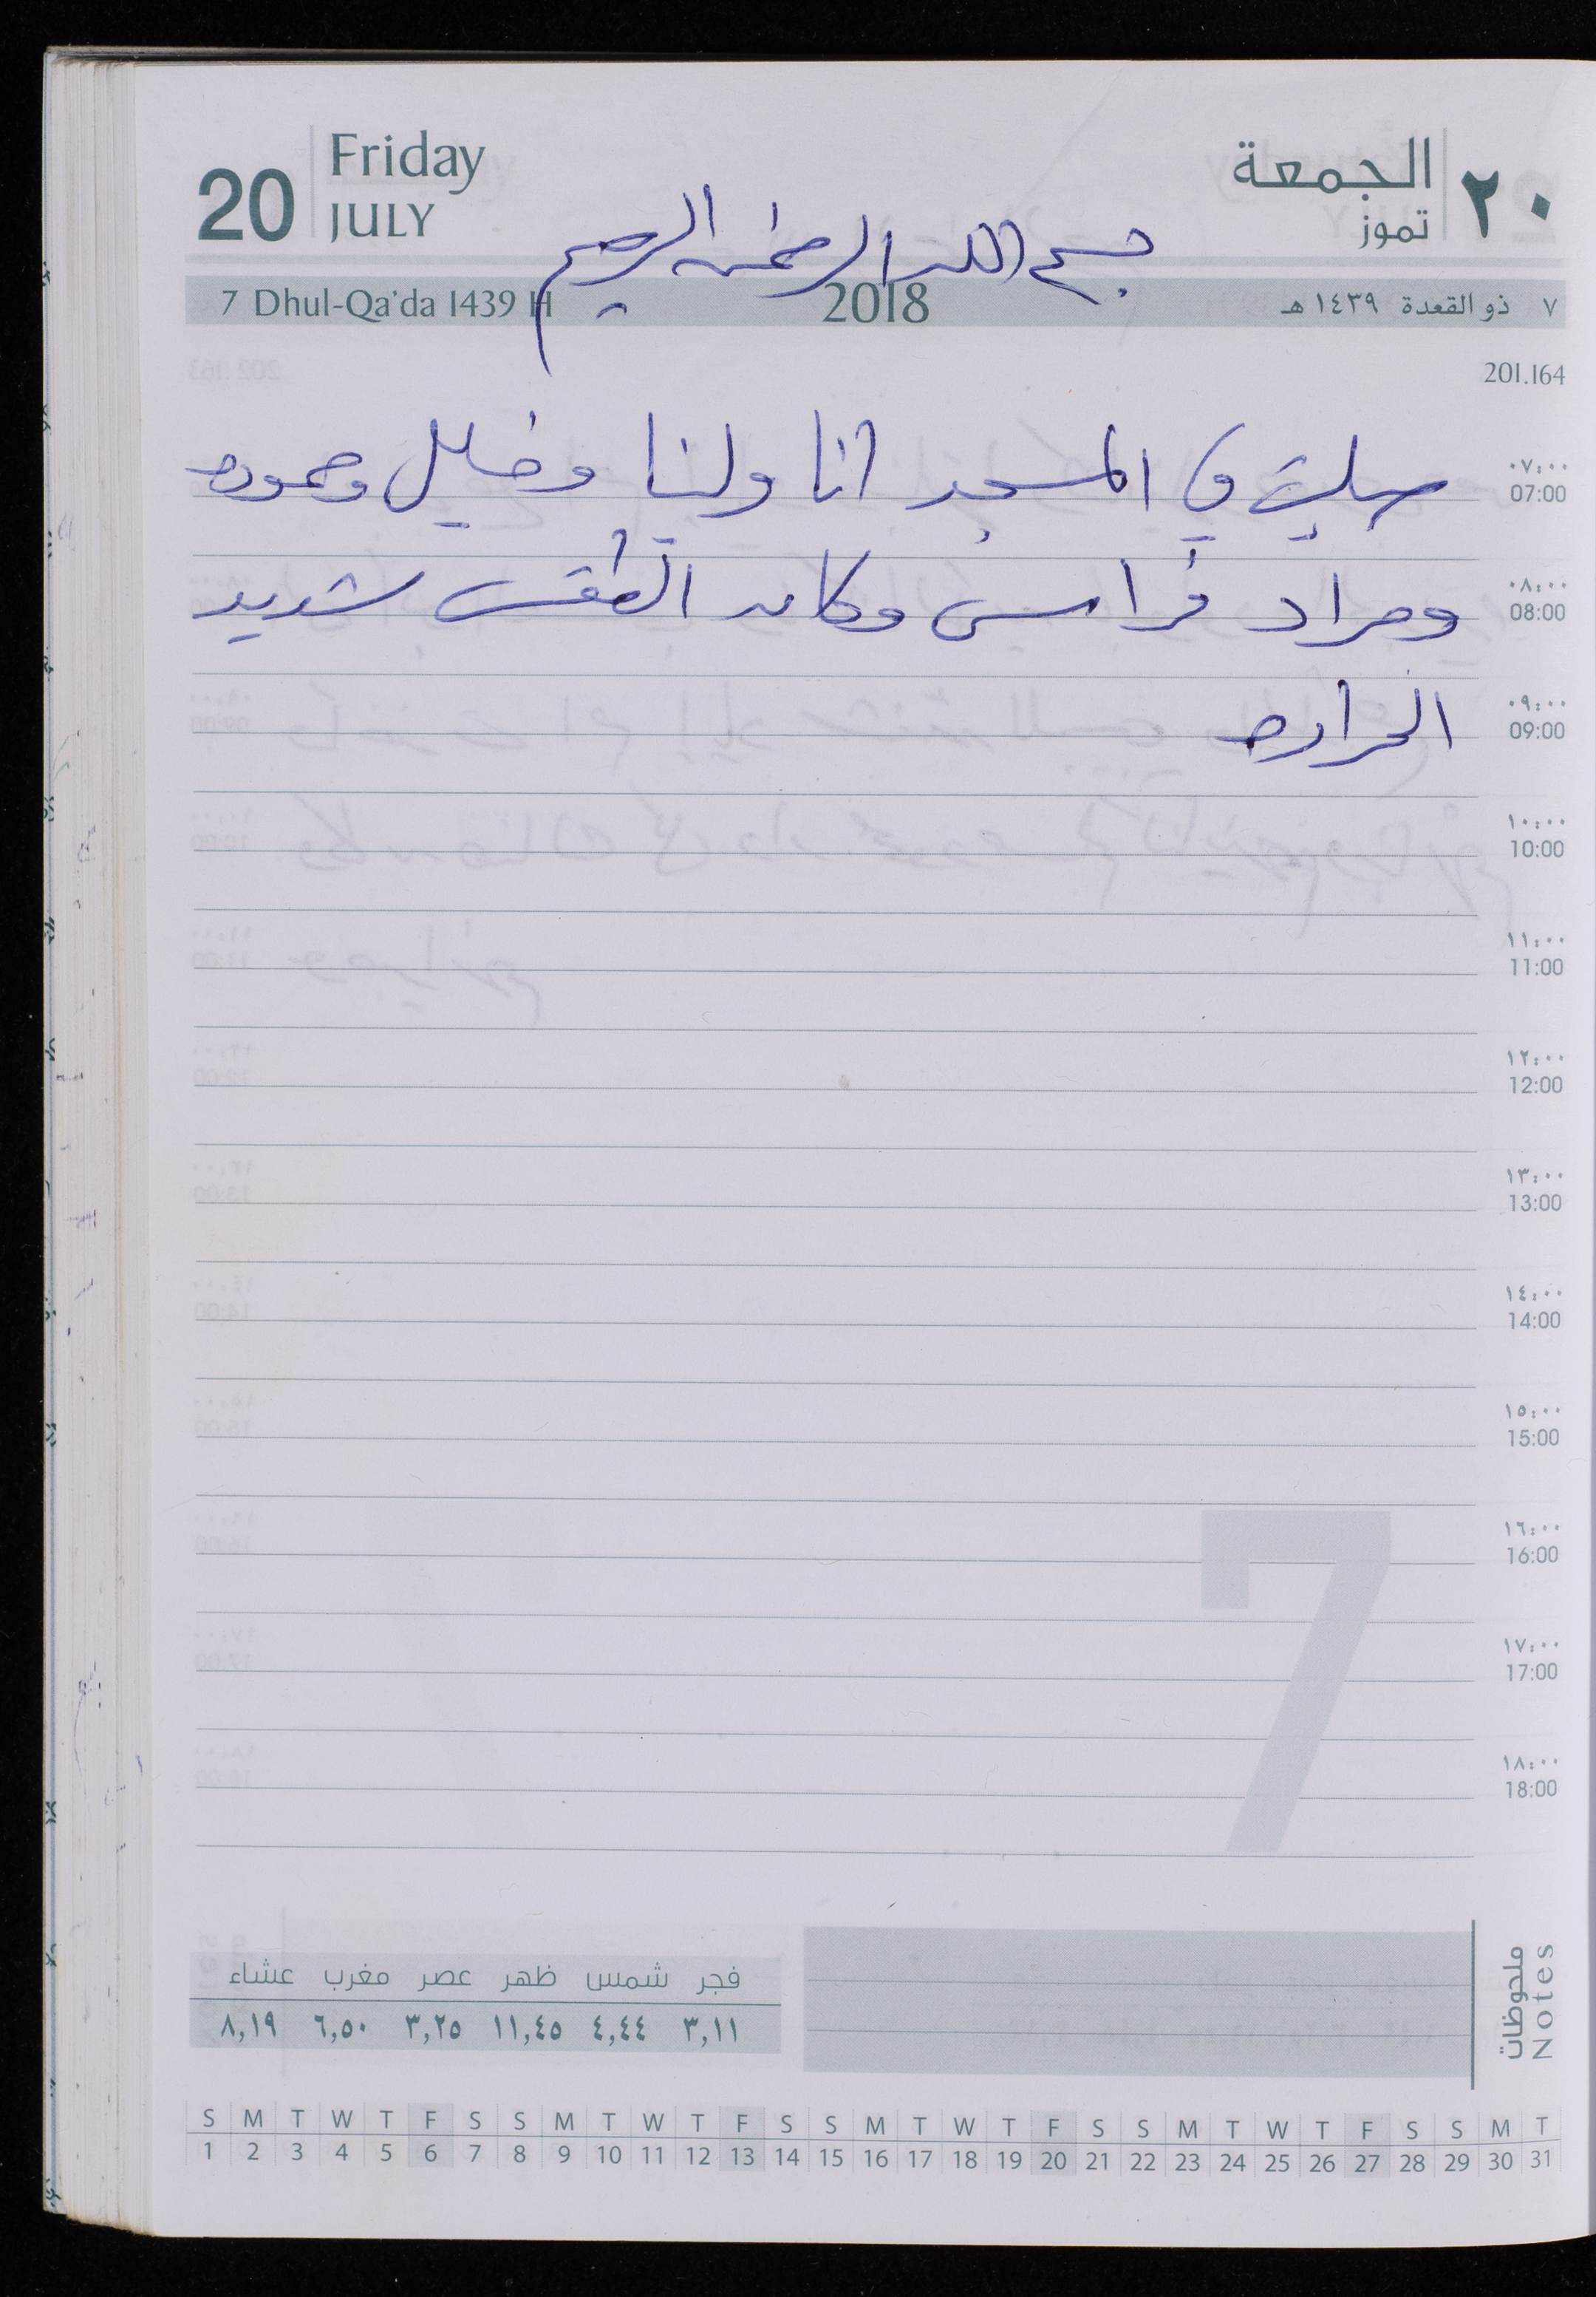 20
Friday
JULY
الجمعة
تموز
٢٠
بسم الله الرحمن الرحيم
7 Dhul-Qa'da 1439 H
2018
٧ ذو القعدة ١٤٣٩ هـ
201.164
صليت في المسجد انا ولينا وخليل وحموده
ومراد فراس وكان الطقس شديد
الحراره
٠٧:٠٠
07:00
٠٨:٠٠
08:00
٠٩:٠٠
09:00
١٠:٠٠
10:00
١١:٠٠
11:00
١٢:٠٠
12:00
١٣:٠٠
13:00
١٤:٠٠
14:00
١٥:٠٠
15:00
١٦:٠٠
16:00
١٧:٠٠
17:00
١٨:٠٠
18:00
7
ملحوظات
Notes
فجر شمس ظهر عصر مغرب عشاء
٣,١١ ٤,٤٤ ١١,٤٥ ٣,٢٥ ٦,٥٠ ٨,١٩
S M T W T F S S M T W T F S S M T W T F S S M T W T F S S M T
1 2 3 4 5 6 7 8 9 10 11 12 13 14 15 16 17 18 19 20 21 22 23 24 25 26 27 28 29 30 31